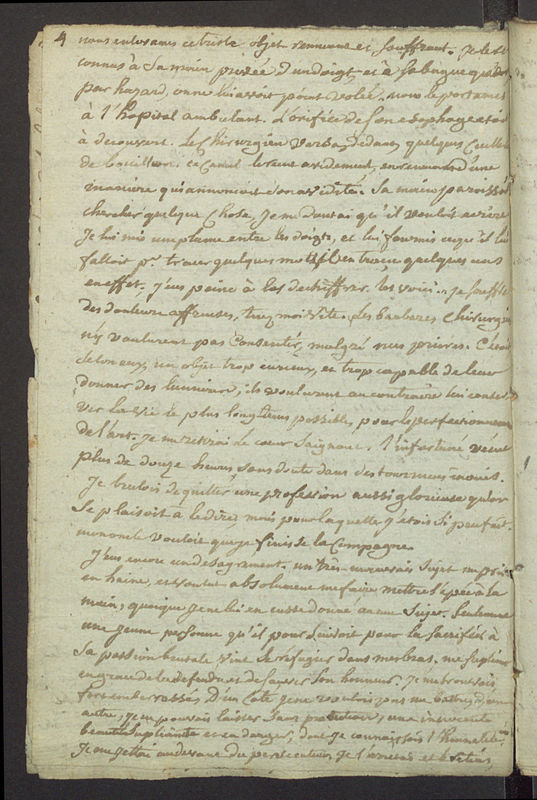 4 nous enlevames ce triste objet remuant et souffrant. je le re
connus à sa main privée d'un doigt et à sa bague que
par hazard, on ne lui avoit point volée. nous le portames
à l'hopital ambulant. L'orifice de son esophage etoit
à decouvert. Le chirurgien versa dedans quelques cuillers
de bouillon; ce canal le recut avidement, en remuant d'une
maniere qui annoncoit son avidité. Sa main paroissoit
chercher quelque chose, je me doutai qu'il vouloit ecrire
Je lui mis une plume entre les doigts, et lui fournis ce qu'il lui
falloit pr. tracer quelques mots. Il en traça quelques uns
en effet. J'eus peine à les dechiffrer. les voici. je souffre
des douleurs affreuses, tuez moi vite. Les barbares chirurgiens
n'y voulurent pas consentir, malgré mes prieres. C'etoit
selon eux, un objet trop curieux, et trop capable de leur
donner des lumieres; ils vouloient au contraire lui conser
ver la vie le plus longtems possible, pour le perfectionnement
de l'art. Je me retirai le coeur saignant. l'infortuné vecut
plus de douze heures, sans doute dans des tourmens inouis.
Je brulois de quitter une profession aussi glorieuse qu'on
se plaisoit à le dire, mais pour laquelle j'etois si peu fait.
mon oncle vouloit que je finisse la Campagne.
J'eus encore un desagrement. un très mauvais sujet me prit
en haine, et voulut absolument me faire mettre l'epée à la
main, quoique je ne lui en eusse donné aucun sujet. Seulement
une jeune personne qu'il poursuivoit pour la sacrifier à
sa passion brutale vint se réfugier dans mes bras, me supliant
en grace de la defendre et de sauver son honneur. Je me trouvois
fort embarrassé, D'un coté je ne voulois pas me battre, d'un
autre, je ne pouvois laisser sans protection, une innocente
beauté supliante et en danger, dont je connaissois l'honneteté.
Je me jettai au devant du persecuteur, je l'arretai et le